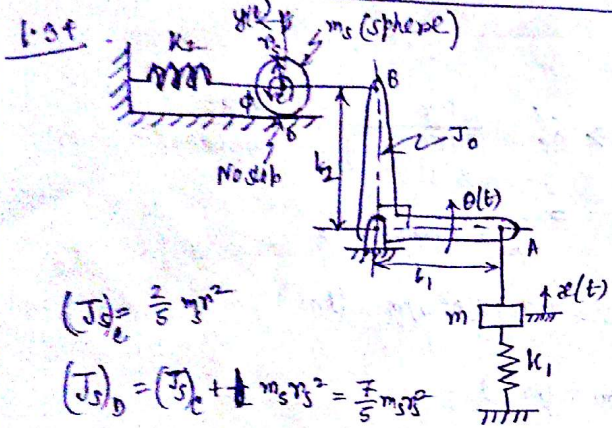 1.34
K₂
y(t)
rₛ
mₛ (sphere)
B
φ
J₀
No slip
l₂
θ(t)
A
l₁
x(t)
m
K₁
(Jₛ)c = 2/5 mₛr²
(Jₛ)D = (Jₛ)c + mₛrₛ² = 7/5 mₛrₛ²